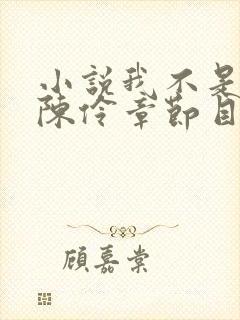 小說我不是
陳伶章節目
顧嘉棠